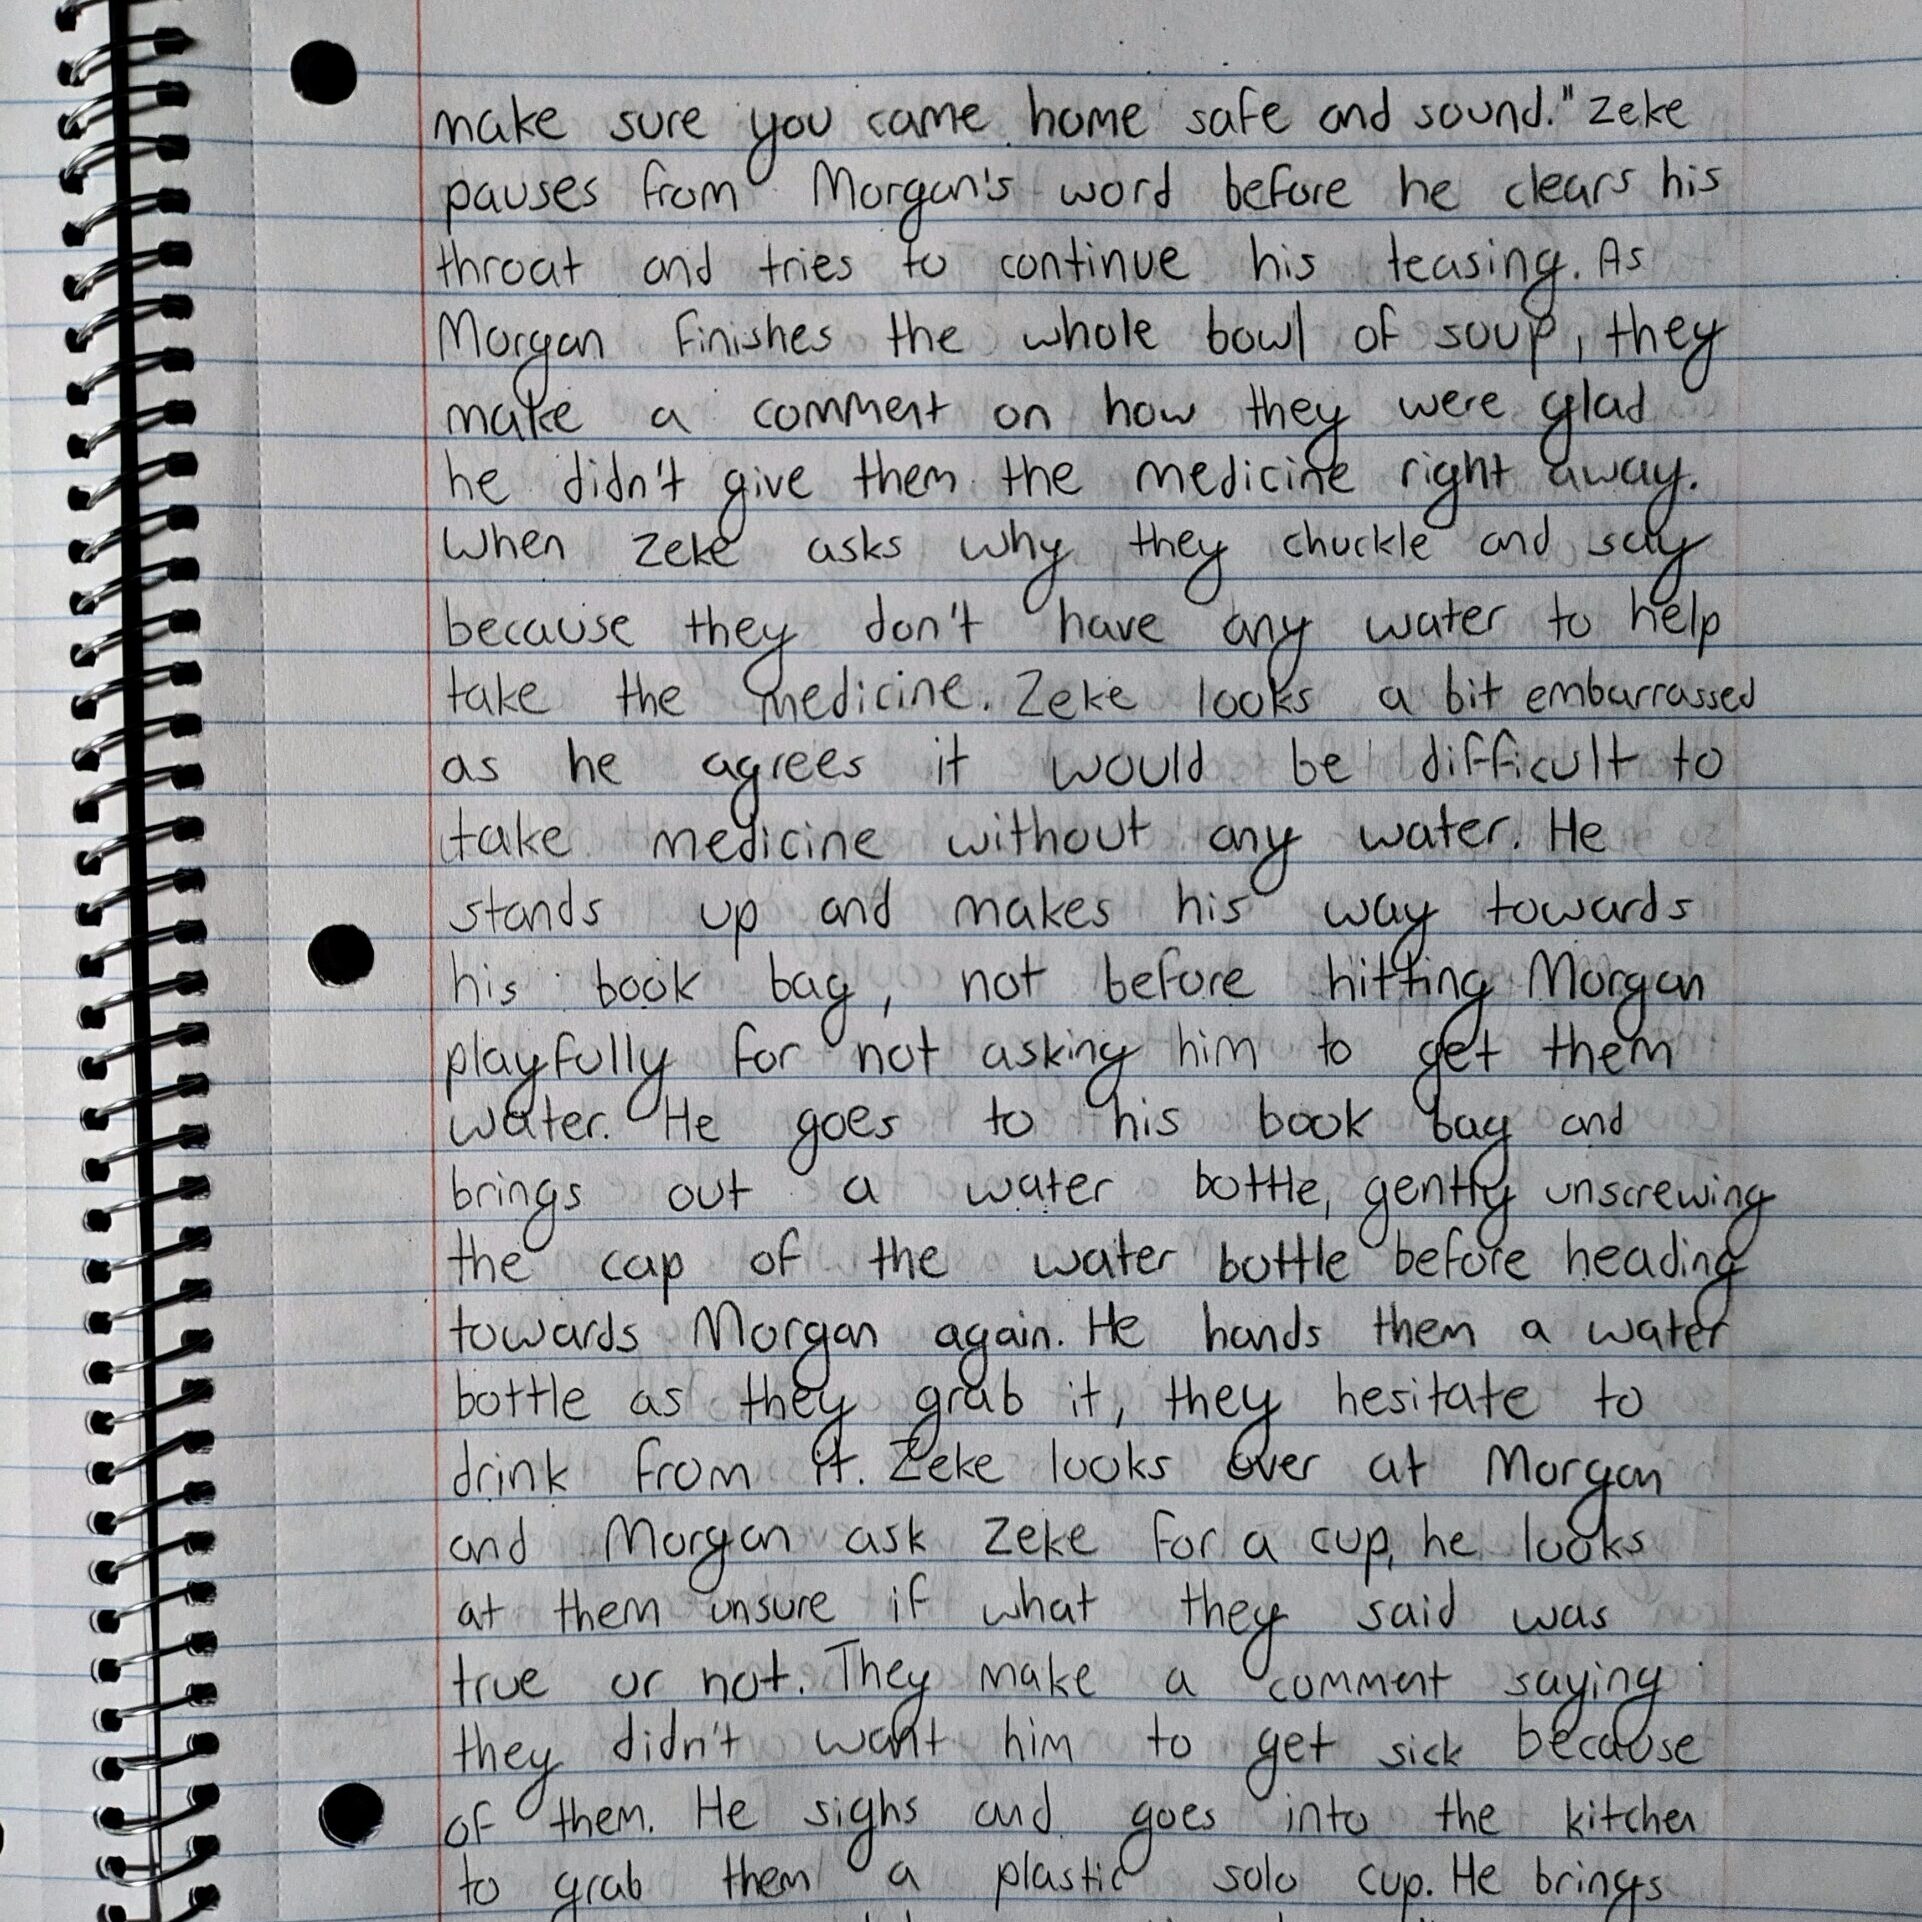 make sure you came home safe and sound." Zeke
pauses from Morgan's word before he clears his
throat and tries to continue his teasing. As
Morgan finishes the whole bowl of soup, they
make a comment on how they were glad
he didn't give them the medicine right away.
When Zeke asks why they chuckle and say
because they don't have any water to help
take the medicine. Zeke looks a bit embarrassed
as he agrees it would be difficult to
take medicine without any water. He
stands up and makes his way towards
his book bag, not before hitting Morgan
playfully for not asking him to get them
water. He goes to his book bag and
brings out a water bottle, gently unscrewing
the cap of the water bottle before heading
towards Morgan again. He hands them a water
bottle as they grab it, they hesitate to
drink from it. Zeke looks over at Morgan
and Morgan ask Zeke for a cup, he looks
at them unsure if what they said was
true or not. They make a comment saying
they didn't want him to get sick because
of them. He sighs and goes into the kitchen
to grab them a plastic solo cup. He brings